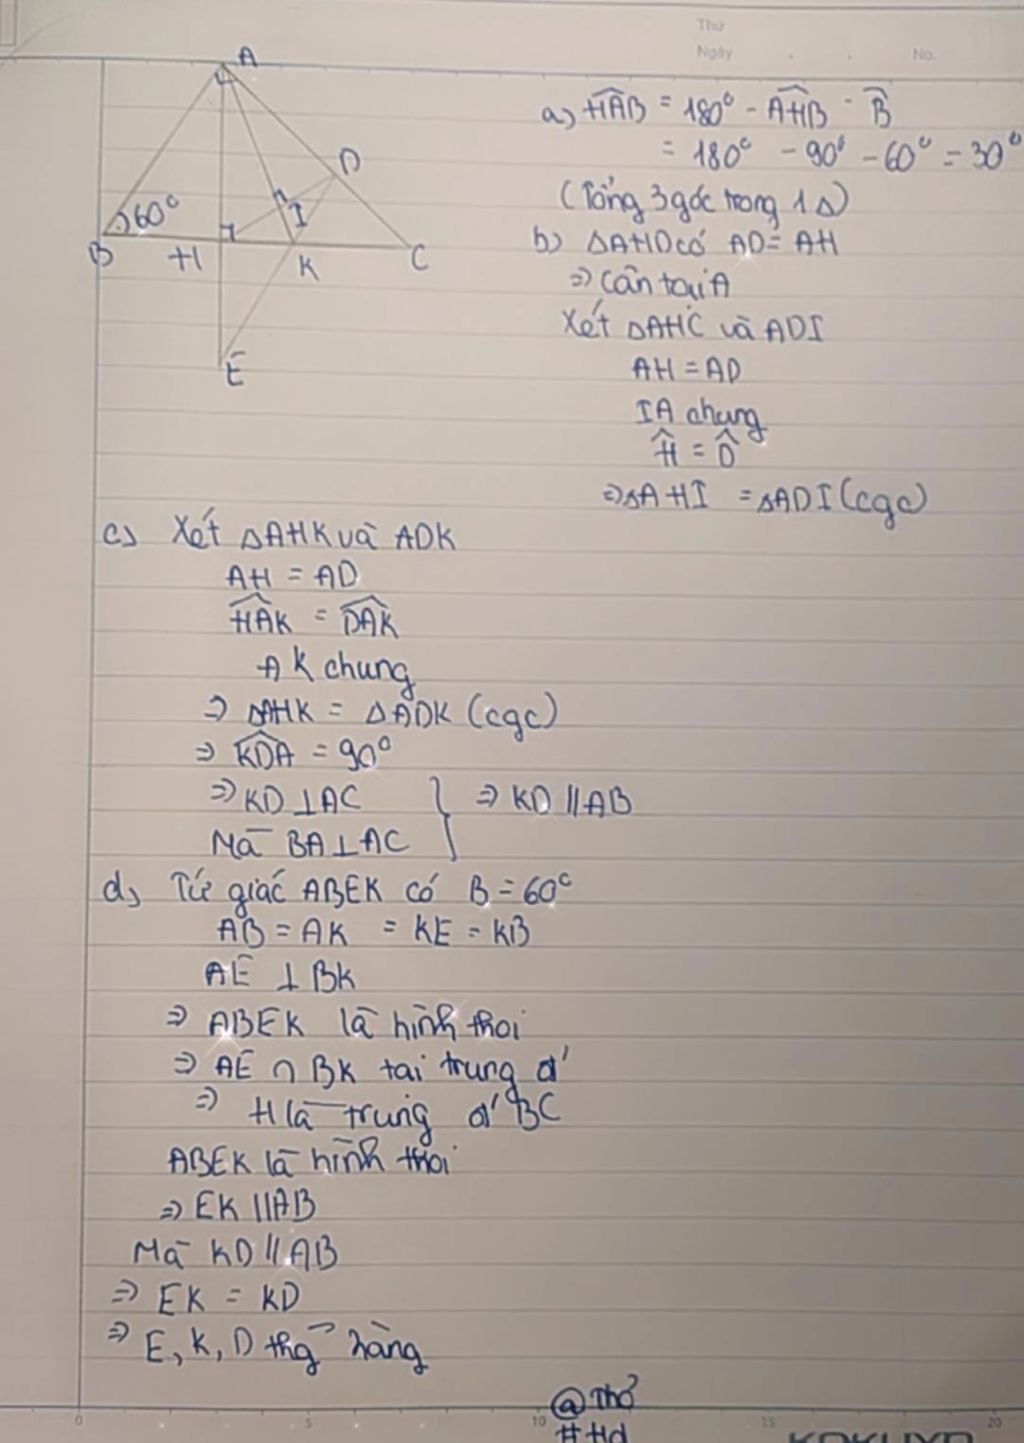 Thứ
Ngày
No.
A
D
60°
I
B
H
K
C
E
a) HAB = 180° - AHB - B
= 180° - 90° - 60° = 30°
(Tổng 3 góc trong 1 Δ)
b) ΔAHD có AD = AH
⇒ Cân tại A
Xét ΔAHC và ADI
AH = AD
IA chung
Ĥ = D̂
⇒ ΔAHI = ΔADI (cgc)
c) Xét ΔAHK và ADK
AH = AD
HAK = DAK
AK chung
⇒ ΔAHK = ΔADK (cgc)
⇒ KDA = 90°
⇒ KD ⊥ AC } ⇒ KD // AB
Mà BA ⊥ AC
d) Tứ giác ABEK có B = 60°
AB = AK = KE = KB
AE ⊥ BK
⇒ ABEK là hình thoi
⇒ AE ∩ BK tại trung đ'
⇒ H là trung đ' BC
ABEK là hình thoi
⇒ EK // AB
Mà KD // AB
⇒ EK = KD
⇒ E, K, D thg hàng
@Thơ
#Hd
0 5 10 15 20
KOKUYO